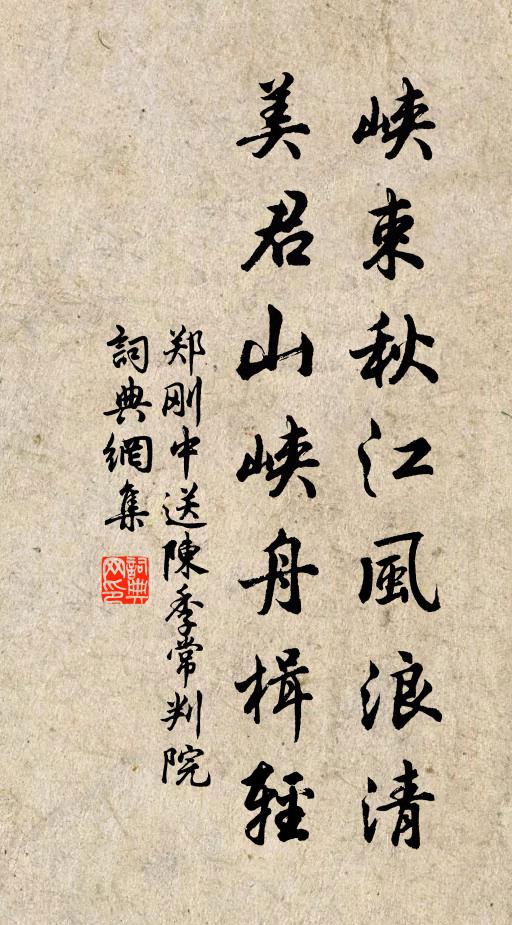 峡東秋江風浪清
美君山峡舟楫輕
郑刚中送陳季常判院
詞典網集
詞典網印